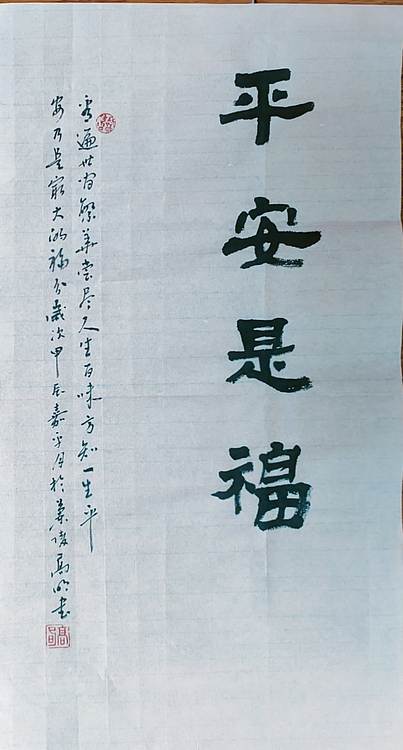 平安是福
看遍世间繁华尝尽人生百味方知一生平
安乃是最大的福分岁次甲辰嘉平月于姜堰高明书